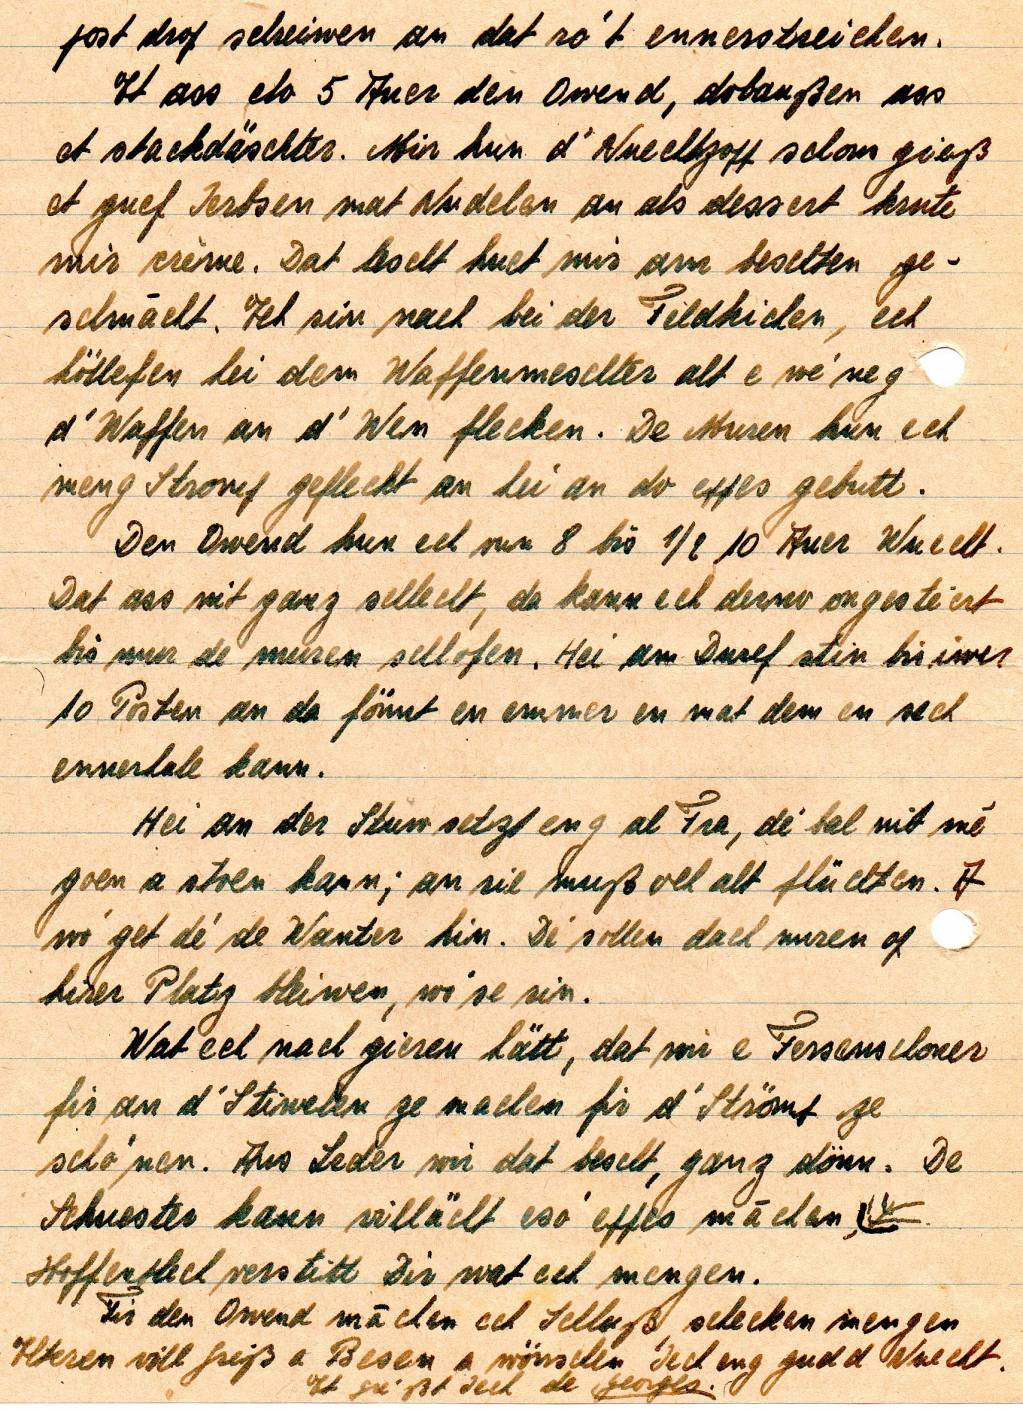 post drop schreiwen an dat ro't ennerstreichen.
Et ass elo 5 Auer den Owend, dobaußen ass
et stackdäschter. Mir hun d' Nuechtzoff schon gieß
et guef Ierbsen mat Nudelen an als dessert krute
mir crème. Dat lescht huet mir am beschten ge-
schmācht. Ech sin nach bei der Feldkichen, ech
höllefen hei dem Waffenmeschter alt e we'neg
d' Waffen an d' Wen flecken. De Muren hun ech
meng Strömp gefleckt an hei an do eppes gebutt.
Den Owend hun ech vun 8 bis 1/2 10 Auer Wuecht.
Dat ass nit ganz schlecht, da kann ech derno ongestéiert
bis mur de muren schlofen. Hei am Duref stin bis iwer
10 Posten an da fönnt en emmer en mat dem en sech
ennerhale kann.
Hei an der Stuw setzt eng al Fra, dé bal nit mé
goen a stoen kann; an sie muß och alt flüchten. A
wó get dé de Wanter hin. Dé sollen dach muren op
hirer Platz bleiwen, wó se sin.
Wat ech nach gieren hätt, dat wir e Fersenschoner
fir an d' Stiwelen ze machen fir d' Strömp ze
schó'nen. Aus Leder wir dat bescht, ganz dönn. De
Schuester kann villächt esó eppes māchen,
Hoffentlech verstitt Dir wat ech mengen.
Fir den Owend māchen ech Schluß, schecken mengen
Elteren vill Greiß a Besen a wönschen Iech eng gudd Nuecht.
Et gréißt Iech de Georges.